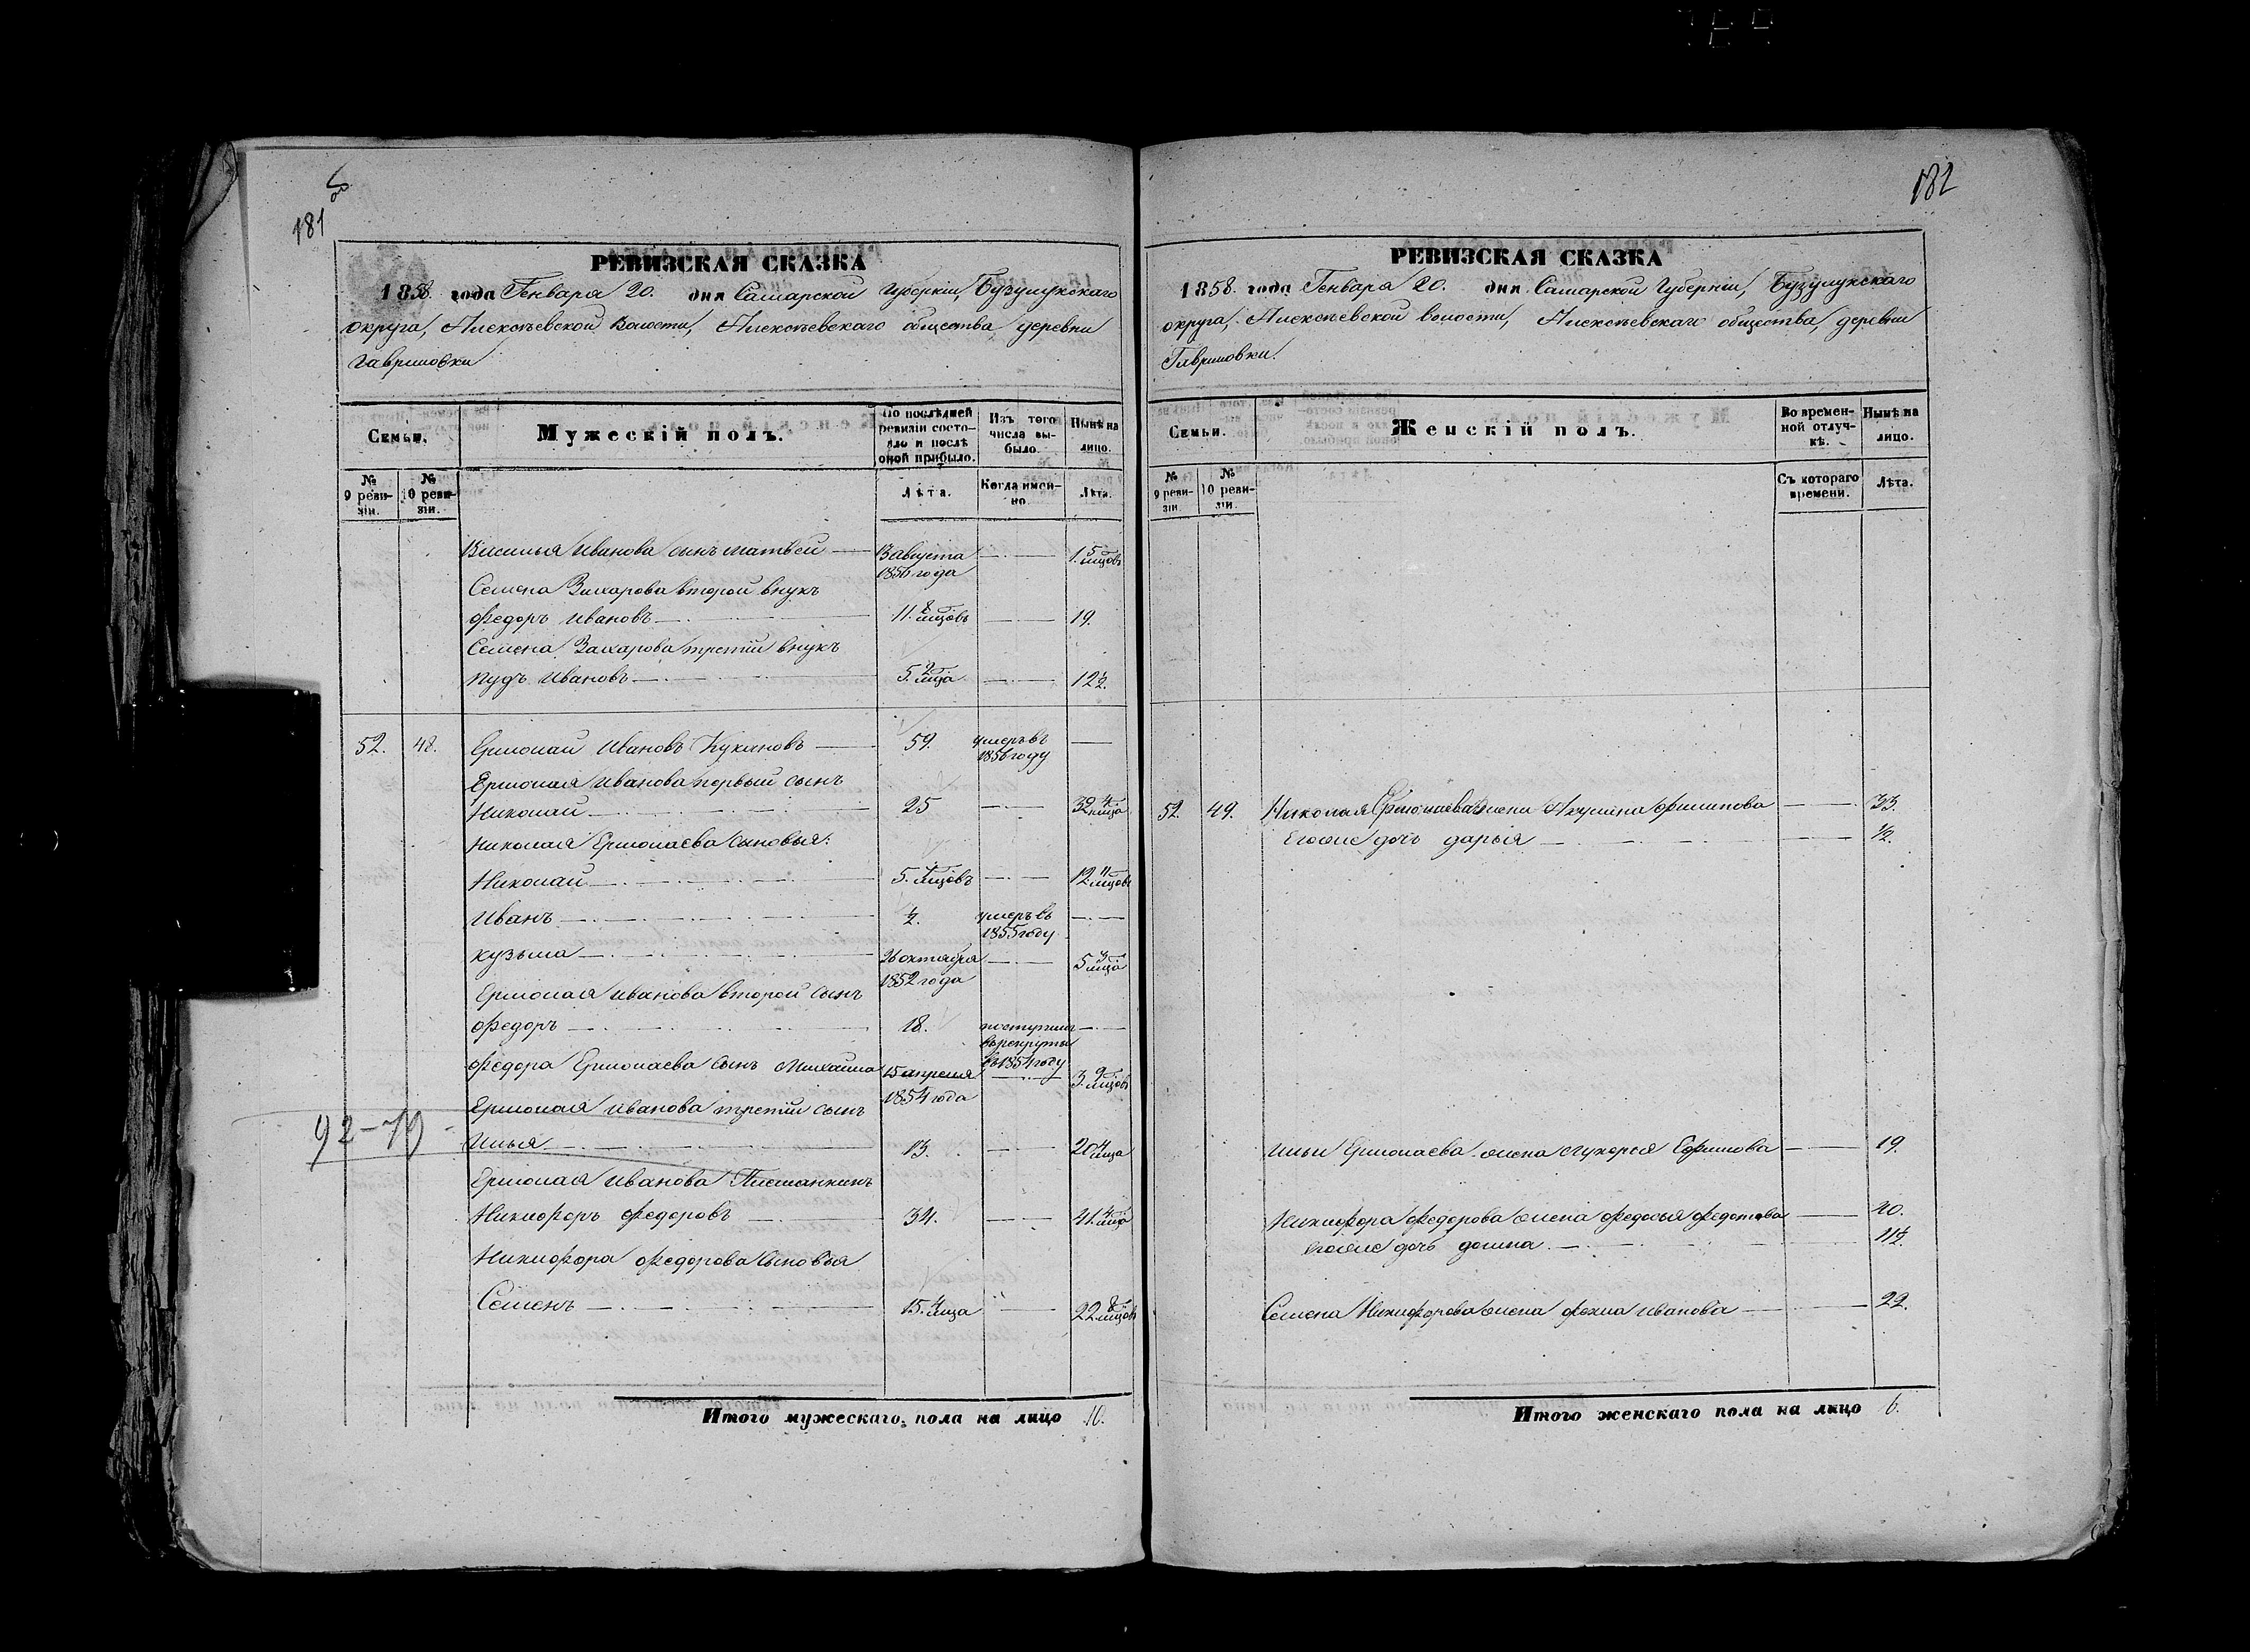 181 об
РЕВИЗСКАЯ СКАЗКА
1858. года Генваря 20. дня Самарской Губернiи, Бузулукскаго
округа, Алексѣевской Волости, Алексѣевскаго общества деревни
Гавриловки
Семьи.
Мужескiй полъ.
По послѣдней ревизiи состояло и послѣ оной прибыло.
Изъ того числа выбыло.
Нынѣ на лицо.
№ 9 ревизiи.
№ 10 ревизiи.
Лѣта.
Когда именно.
Лѣта.
Василья Иванова сынъ Матвей 13 августа 1856 года 1. 5 мцовъ
Семена Захарова второй внукъ
Федоръ Ивановъ 11. 8 мцовъ 19.
Семена Захарова третiй внукъ
Пудъ Ивановъ 5. 2 мца 12 1/2.
52. 48. Ермолай Ивановъ Кукановъ 59. умеръ въ 1856 году
Ермолая Иванова первый сынъ
Николай 25 32. 4 мца
Николая Ермолаева сыновья:
Николай 5. мцовъ 12. 11 мцовъ
Иванъ 1/2. умеръ въ 1855 году
Кузьма 26 октября 1852 года 5. 3 мца
Ермолая Иванова второй сынъ
Федоръ 18. поступилъ въ рекруты въ 1854 году
Федора Ермолаева сынъ Михайла 15 апреля 1854 года 3. 9 мцовъ
Ермолая Иванова третiй сынъ
92-79
Илья 13. 20. 4 мца
Ермолая Иванова Племянникъ
Никифоръ Федоровъ 34. 41. 4 мца
Никифора Федорова сыновья
Семенъ 15. 4 мца 22. 8 мцовъ
Итого мужескаго пола на лицо 10.
182
РЕВИЗСКАЯ СКАЗКА
1858. года Генваря 20. дня Самарской Губернiи, Бузулукскаго
округа, Алексѣевской волости, Алексѣевскаго общества, деревни
Гавриловки.
Семьи.
Женскiй полъ.
Во временной отлучкѣ.
Нынѣ на лицо.
№ 9 ревизiи.
№ 10 ревизiи.
Съ котораго времени.
Лѣта.
52. 49. Николая Ермолаева жена Акулина Филипова 33.
Егоже дочь Дарья 1/2.
Ильи Ермолаева жена Лукерья Ефимова 19.
Никифора Федорова жена Федосья Федотова 40.
Егоже дочь Домна 11 1/2.
Семена Никифорова жена Фекла Иванова 22.
Итого женскаго пола на лицо 6.